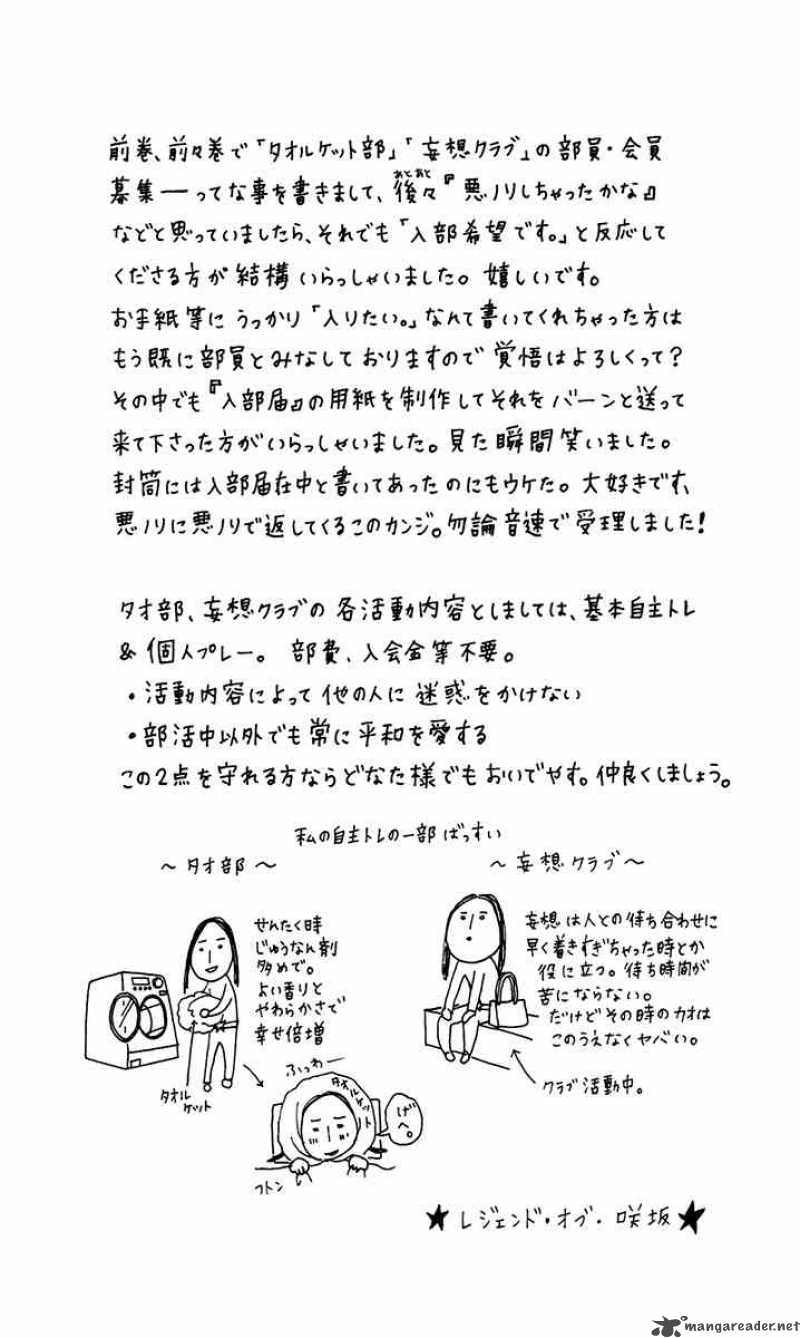 前巻、前々巻で「タオルケット部」「妄想クラブ」の部員・会員
募集──ってな事を書きまして、後々『悪ノリしちゃったかな』
あとあと
などと思っていましたら、それでも「入部希望です。」と反応して
くださる方が結構いらっしゃいました。嬉しいです。
お手紙等にうっかり「入りたい。」なんて書いてくれちゃった方は
もう既に部員とみなしておりますので覚悟はよろしくって？
その中でも『入部届』の用紙を制作してそれをバーンと送って
来て下さった方がいらっしゃいました。見た瞬間笑いました。
封筒には入部届在中と書いてあったのにもウケた。大好きです、
悪ノリに悪ノリで返してくるこのカンジ。勿論音速で受理しました！
タオ部、妄想クラブの各活動内容としましては、基本自主トレ
&個人プレー。部費、入会金等不要。
・活動内容によって他の人に迷惑をかけない
・部活中以外でも常に平和を愛する
この2点を守れる方ならどなた様でもおいでやす。仲良くしましょう。
私の自主トレの一部ばっすい
〜タオ部〜
せんたく時
じゅうなん剤
多めで。
よい香りと
やわらかさで
幸せ倍増
タオル
ケット
ふっわー
タオルケット
げへ。
フトン
〜妄想クラブ〜
妄想は人との待ち合わせに
早く着きすぎちゃった時とか
役に立つ。待ち時間が
苦にならない。
だけどその時のカオは
このうえなくヤバい。
クラブ活動中。
★レジェンド・オブ・咲坂★
mangareader.net